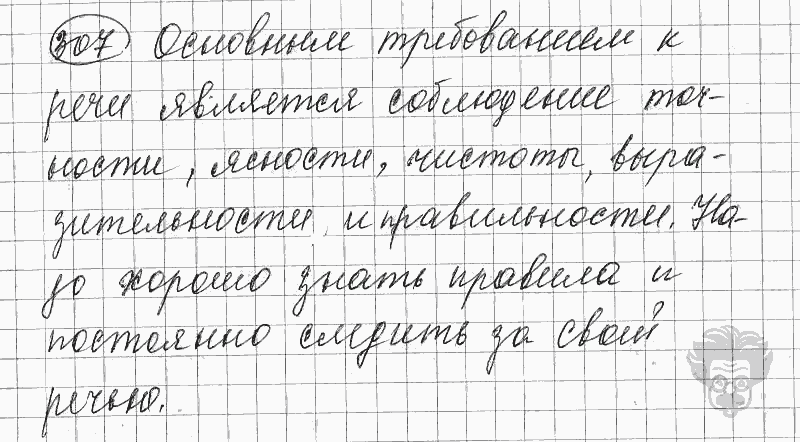 307 Основным требованием к
речи является соблюдение точ-
ности, ясности, чистоты, выра-
зительности и правильности. На-
до хорошо знать правила и
постоянно следить за свой
речью.